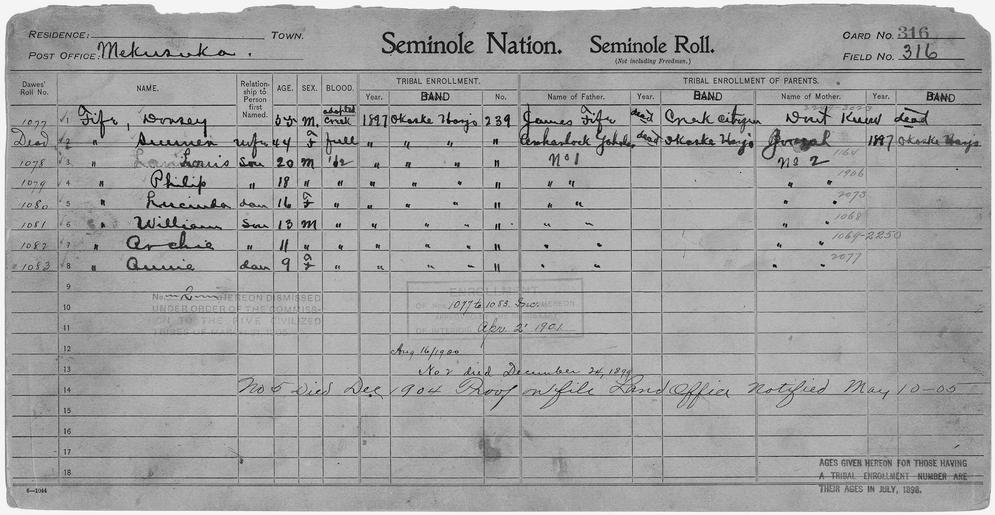 RESIDENCE: TOWN.
POST OFFICE: Mekusuka.
Seminole Nation. Seminole Roll.
(Not including Freedmen.)
CARD NO. 316
FIELD NO. 316
Dawes' Roll No. NAME. Relationship to Person first Named. AGE. SEX. BLOOD. TRIBAL ENROLLMENT. TRIBAL ENROLLMENT OF PARENTS.
Year. BAND No. Name of Father. Year. BAND Name of Mother. Year. BAND
1077 1 Fife, Dorsey 55 M. adopted Creek 1897 Okoske Harjo 239 James Fife dead Creek Citizen Dont Know dead
Dead 2 " wife 44 F full " " " " dead Okoske Harjo 1897 Okoske Harjo
1078 3 " Louis son 20 M 1/2 " " " " No 1 No 2
1164
1079 4 " Philip " 18 " " " " " " " " " "
1906
1080 5 " Lucinda dau 16 F " " " " " " " " "
2073
1081 6 " William son 13 M " " " " " " " " "
1068
1082 7 " Archie " 11 " " " " " " " " " "
1069-2250
1083 8 " Annie dau 9 F " " " " " " " " "
2077
9
No. 2 HEREON DISMISSED
UNDER ORDER OF THE COMMISSION
TO THE FIVE CIVILIZED
TRIBES OF
ENROLLMENT
OF HEREON
10 1077 to 1083 Inc.
OF INTERIOR
11 Apr. 2 1901
12 Aug 16/1900
13 No 2 died December 24, 1899
14 No 5 Died Dec. 1904 Proof on file Land Office Notified May 10-05
15
16
17
18
AGES GIVEN HEREON FOR THOSE HAVING
A TRIBAL ENROLLMENT NUMBER ARE
THEIR AGES IN JULY, 1898.
6—1044